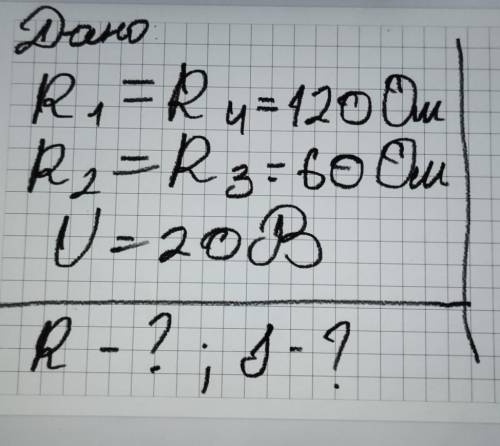 Дано
R₁ = R₄ = 120 Ом
R₂ = R₃ = 60 Ом
U = 20 В
R - ? ; J - ?